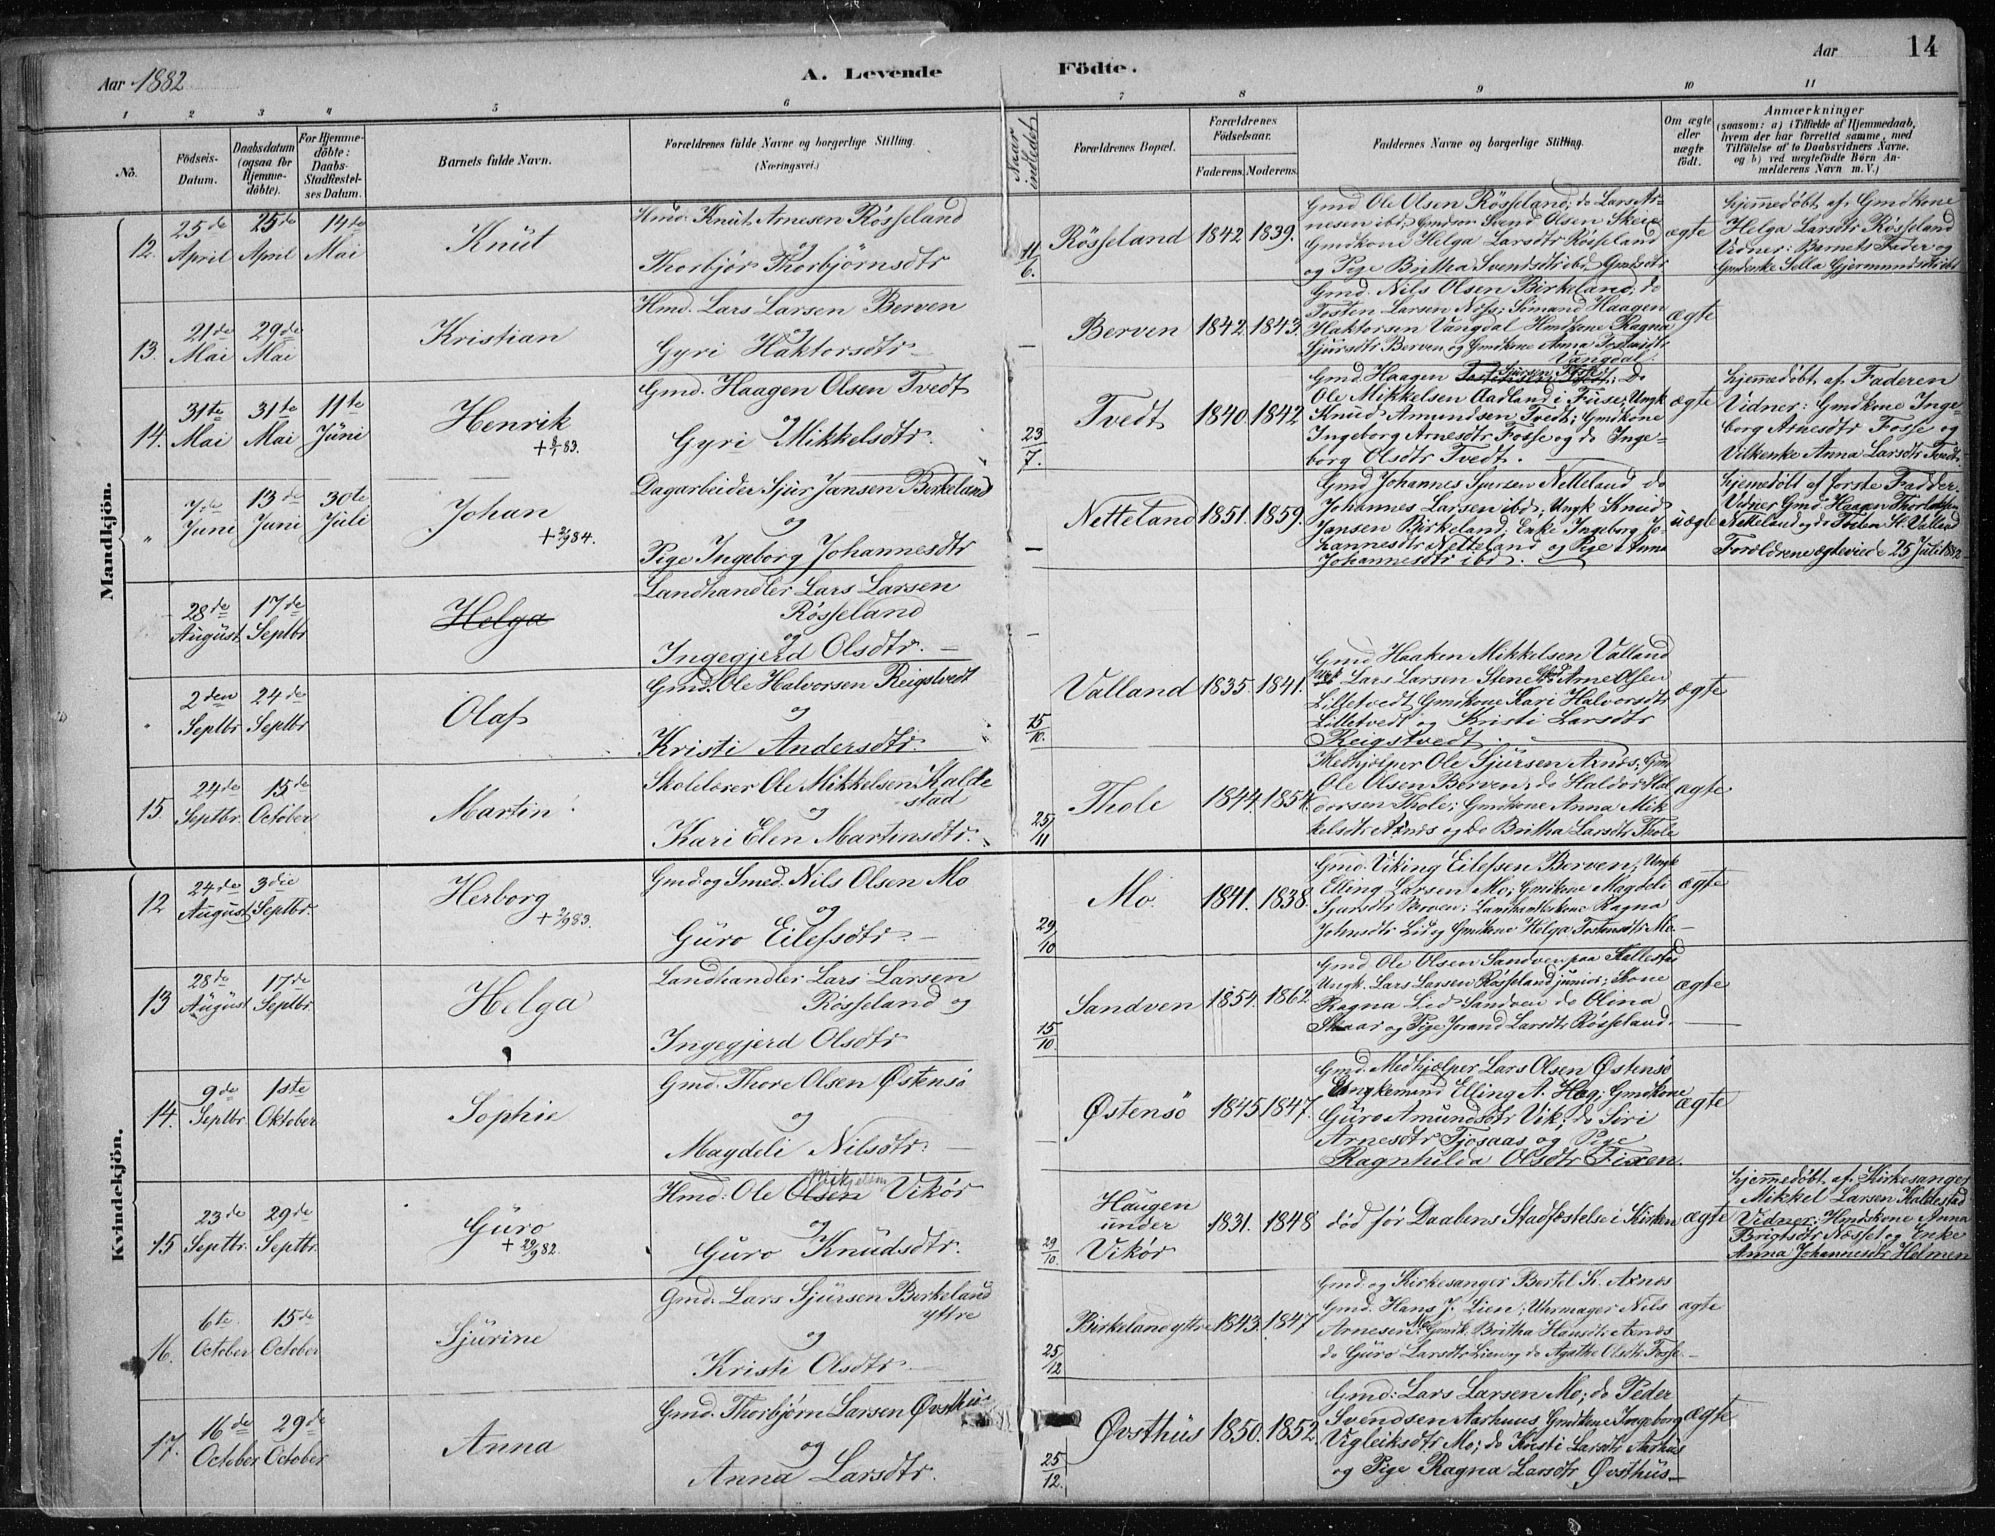 Aar 1882
A. Levende
Födte.
Aar
14
1
2
3
4
5
6
7
8
9
10
11
No.
Födsels-
Datum.
Daabsdatum
(ogsaa for
Hjemme-
döbte).
For Hjemme-
döbte:
Daabs-
Stadfæstel-
ses Datum.
Barnets fulde Navn.
Forældrenes fulde Navne og borgerlige Stilling.
(Næringsvei.)
Naar
indledet.
Forældrenes Bopæl.
Forældrenes
Födselsaar.
Faderens.
Moderens.
Faddernes Navne og borgerlige Stilling.
Om ægte
eller
uægte
födt.
Anmærkninger
(saasom: a) i Tilfælde af Hjemmedaab,
hvem der har forrettet samme, med
Tilföielse af to Daabsvidners Navne.
og b) ved uægtefödte Börn An-
melderens Navn m. V.)
Mandkjön.
12.
25de April
25de April
14de Mai
Knut
Hmd. Knut Arnesen Røsseland
og
Thorbjør Thorbjørnsdtr
11/6.
Røsseland
1842
1839.
Gmd Ole Olsen Røsseland; do Lars Ar-
nesen ibd; Gmdsøn Svend Olsen Skeie
Gmdkone Helga Larsdtr Røsseland
og Pige Britha Svendsdtr ibd Gmdsdtr
ægte
hjemmedøbt af Gmdkone
Helga Larsdtr Røsseland
Vidner: Barnets Fader og
Gmdenke Sella Gjermundsdtr ibd
13.
21de Mai
29de Mai
Kristian
Hmd. Lars Larsen Berven
og
Gyri Haktorsdtr
—
Berven
1842.
1843.
Gmd. Nils Olsen Birkeland; do
Tosten Larsen Næss; Simand Haagen
Haktorsen Vangdal Hmdkone Ragna
Sjursdtr Berven og Gmdkone Anna Tostensdtr
Vangdal.
ægte
14.
31te Mai
31te Mai
11te Juni
Henrik
+ 8/1 83.
Gmd. Haagen Olsen Tvedt
og
Gyri Mikkelsdtr.
23/7.
Tvedt
1840.
1842
Gmd. Haagen Do
Ole Mikkelsen Aadland i Fuse; Ungk
Knud Amundsen Tvedt; Gmdkone
Ingeborg Arnesdtr Fosse og do Inge-
borg Olsdtr Tvedt.
ægte
hjemmedøbt af Faderen
Vidner: Gmdkone Inge-
borg Arnesdtr Fosse og
Vilkenke Anna Larsdtr Tvedt.
"
7de Juni
13de Juni
30te Juli
Johan
+ 2/9 84.
Dagarbeider Sjur Jansen Birkeland
og
Pige Ingeborg Johannesdtr
—
Netteland
1851.
1859.
Gmd Johannes Sjursen Netteland do
Johannes Larsen ibd; Ungk Knud
Jansen Birkeland, Enke Ingeborg Jo-
hannesdtr Netteland og Pige Anna
Johannesdtr ibd.
uægte
hjemmedøbt af første Fadder.
Vidner Gmd. Haagen
Netteland og do Tosten H. Valland
Forældrene ægteviede 25 Juli 1882.
28de August
17de Septbr
Helga
Landhandler Lars Larsen
Røsseland
og
Ingegjerd Olsdtr.
—
"
2den Septbr
24de Septbr
Olaf
Gmd. Ole Halvorsen Reigstvedt
og
Kristi Andersdtr.
15/10.
Valland
1835.
1841.
Gmd Haaken Mikkelsen Valland
Ungk. Lars Larsen Stene Gmd Arne Olsen
Lilletvedt Gmdkone Kari Halvorsdtr
Lilletvedt og Kristi Larsdtr
Reigstvedt.
ægte
15
24de Septbr.
15de October
Martin
Skolelærer Ole Mikkelsen Kalde
stad
og
Kari Elen Martinsdtr.
25/11
Thole
1844.
1854.
Medhjælper Ole Sjursen Axnes; Gmd
Ole Olsen Berven; do Haldor Hal
dorsen Thole; Gmdkone Anna Mik
kelsdtr Axnes og do Britha Larsdtr Thole
ægte
Kvindekjön.
12
24de August
3die Septbr.
Herborg
+ 2/9 83.
Gmd. og Smed. Nils Olsen Mo
og
Guro Eilefsdtr.
29/10
Mo
1841.
1838.
Gmd. Viking Eilefsen Berven; Ungk
Elling Larsen Mo; Gmdkone Magdeli
Sjursdtr Berven; Landhandlerkone Ragna
Johnsdtr Lid og Gmdkone Helga Tostensdtr Mo.
ægte
13
28de August
17de Septbr.
Helga
Landhandler Lars Larsen
Røsseland og
Ingegjerd Olsdtr
15/10.
Sandven
1854.
1862
Gmd Ole Olsen Sandven paa
Ungk. Lars Larsen Røsseland junior; Kone
Ragna Lid Sandven do Olina
Skaar og Pige Jorand Larsdtr Røsseland.
ægte
14.
9de Septbr
1ste Oktober
Sophie
Gmd. Thore Olsen Østensø
og
Magdeli Nilsdtr.
—
Østensö
1845
1847.
Gmd. Medhjælper Lars Olsen Østensø
Ungkemand Elling A. Hæg; Gmdkone
Guro Amundsdtr Vik; do Siri
Arnesdtr Tjosaas og Pige
Ragnhilda Olsdtr Fixen.
ægte
15
23de Septbr.
29de Septbr.
Guro
+ 29/9 82.
Hmd. Ole Olsen Vikör
Mikjelsen
og
Guro Knudsdtr.
29/10.
Haugen
under
Vikör
1831.
1848
död for Daabens Stadfæstelse i Kirken
ægte
hjemmedøbt af Kirkesanger
Mikkel Larsen Kaldestad
Vidner: Hmdskone Anna
Brigtsdtr Næsset og Enke
Anna Johannesdtr Holmen
16.
6te October
15de October
Sjurine
Gmd. Lars Sjursen Berkeland
yttre
og
Kristi Olsdtr
25/12
Birkeland yttre
1843.
1847
Gmd og Kirkesanger Bertel K. Axnes
Gmd. Hans J. Lien; Uhrmager Nils
Arnesen Gmdk. Britha Hansdtr Axnes
do Guro Larsdtr Lien og do Agathe Olsdtr Fosse
ægte
17.
16de October
29de October
Anna
Gmd. Thorbjørn Larsen Øvsthus
og
Anna Larsdtr.
25/12.
Øvsthüs
1850.
1852.
Gmd. Lars Larsen Mo; do Peder
Svendsen Aarhuus Gmdkone Ingeborg
Vigleiksdtr Mo; do Kristi Larsdtr Aarhus
og Pige Ragna Larsdtr Øvsthüs—
ægte